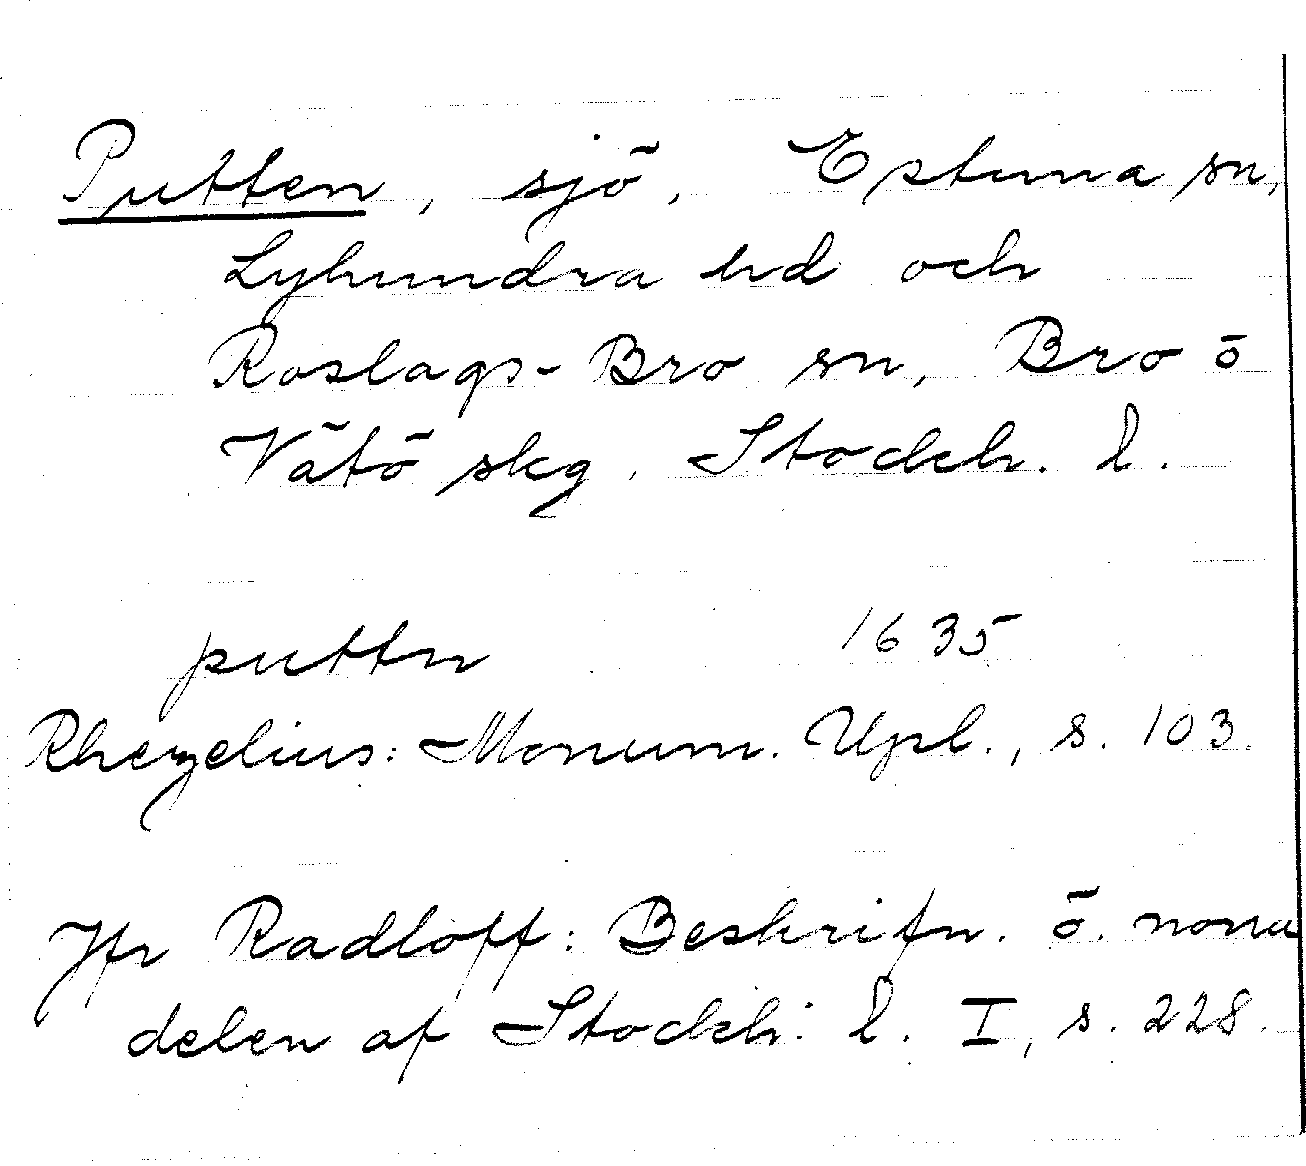 Putten, sjö, Estuna sn,
Lyhundra hd och
Roslags-Bro sn, Bro o
Vätö skg. Stockh. l.
puttn 1635
Rhezelius: Monum. Upl., s. 103.
Jfr Radloff: Beskrifn. ö. norra
delen af Stockh: l. I, s. 228.